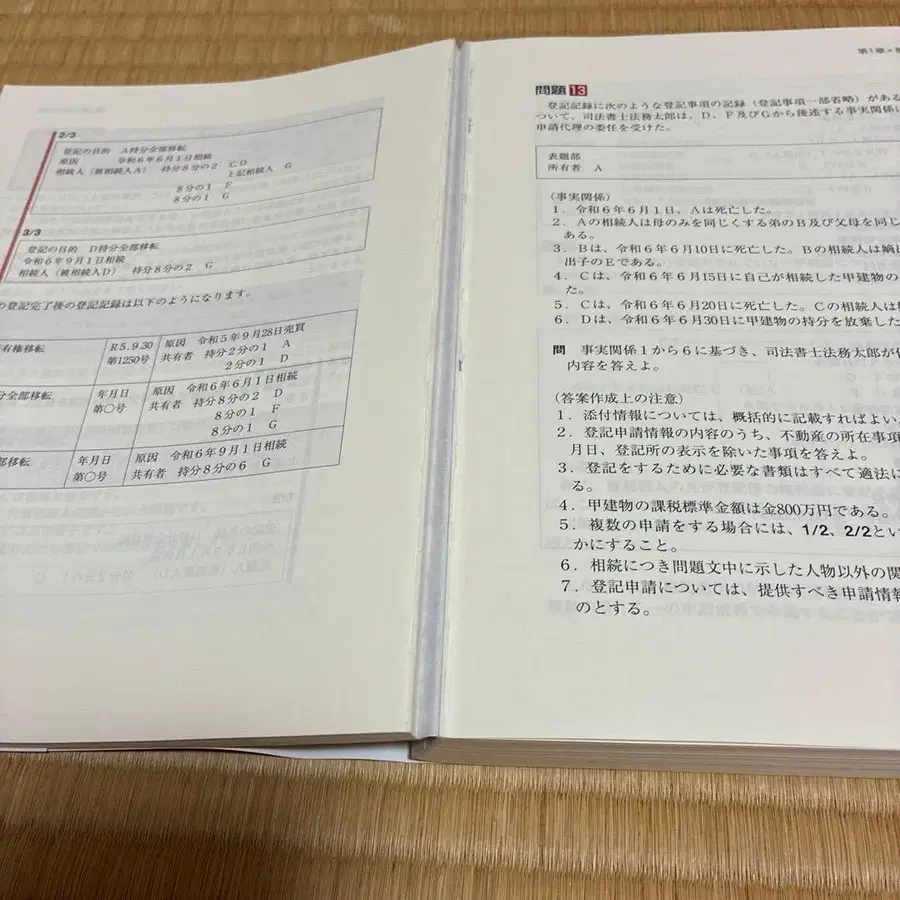 2/3
登記の目的　A持分全部移転
原因　令和6年6月1日相続
相続人（被相続人A）　持分8分の2　CD
上記相続人　G
8分の1　F
8分の1　G
3/3
登記の目的　D持分全部移転
令和6年9月1日相続
相続人（被相続人D）　持分8分の2　G
の登記完了後の登記記録は以下のようになります。
有権移転　R5.9.30　原因　令和5年9月28日売買
第1250号　共有者　持分2分の1　A
2分の1　D
分全部移転　年月日　原因　令和6年6月1日相続
第〇号　共有者　持分8分の2　D
8分の1　F
8分の1　G
部移転　年月日　原因　令和6年9月1日相続
第〇号　共有者　持分8分の6　G
第1章
問題13
登記記録に次のような登記事項の記録（登記事項一部省略）がある
ついて、司法書士法務太郎は、D、F及びGから後述する事実関係に
申請代理の委任を受けた。
表題部
所有者　A
（事実関係）
1．令和6年6月1日、Aは死亡した。
2．Aの相続人は母のみを同じくする弟のB及び父母を同じ
ある。
3．Bは、令和6年6月10日に死亡した。Bの相続人は嫡出
出子のEである。
4．Cは、令和6年6月15日に自己が相続した甲建物の
た。
5．Cは、令和6年6月20日に死亡した。Cの相続人は
6．Dは、令和6年6月30日に甲建物の持分を放棄した
問　事実関係1から6に基づき、司法書士法務太郎が
内容を答えよ。
（答案作成上の注意）
1．添付情報については、概括的に記載すればよい
2．登記申請情報の内容のうち、不動産の所在事項
月日、登記所の表示を除いた事項を答えよ。
3．登記をするために必要な書類はすべて適法に
る。
4．甲建物の課税標準金額は金800万円である。
5．複数の申請をする場合には、1/2、2/2とい
かにすること。
6．相続につき問題文中に示した人物以外の関
7．登記申請については、提供すべき申請情報
のとする。